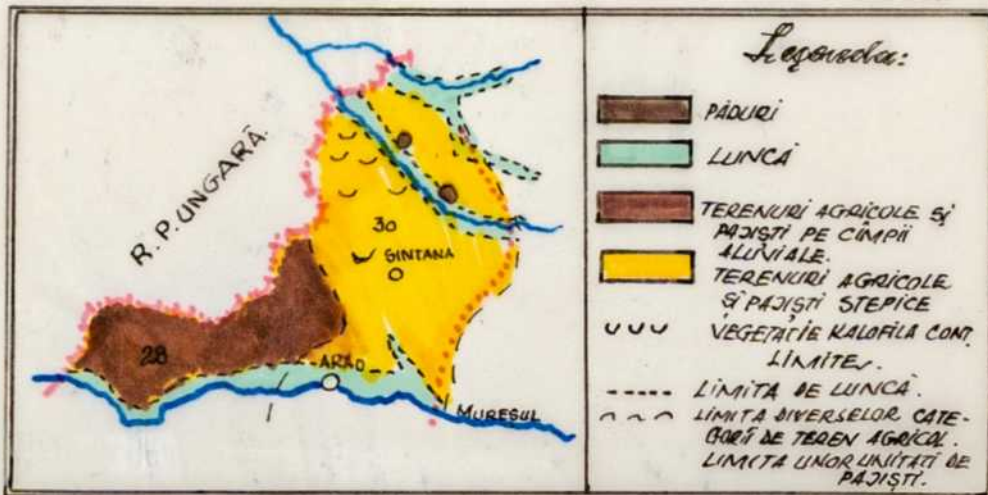 R.P. UNGARĂ.
30
SINTANA
28
ARAD
MURESUL
Legenda:
PĂDURI
LUNCĂ
TERENURI AGRICOLE SI
PAJISTI PE CÎMPII
ALUVIALE.
TERENURI AGRICOLE
SI PAJISTI STEPICE
VEGETATIE HALOFILA CONT.
LIMITE.
LIMITA DE LUNCĂ.
LIMITA DIVERSELOR CATE-
GORII DE TEREN AGRICOL.
LIMITA UNOR UNITATI DE
PAJISTI.